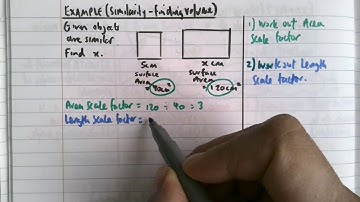 EXAMPLE (Similarity - finding volume)
Given objects
are similar
Find x.
5cm
surface
Area
= 40cm²
x cm
surface
Area
= 120cm²
Area scale factor = 120 ÷ 40 = 3
Length scale factor =
1) Work out Area
scale factor
2) Work out Length
Scale factor.